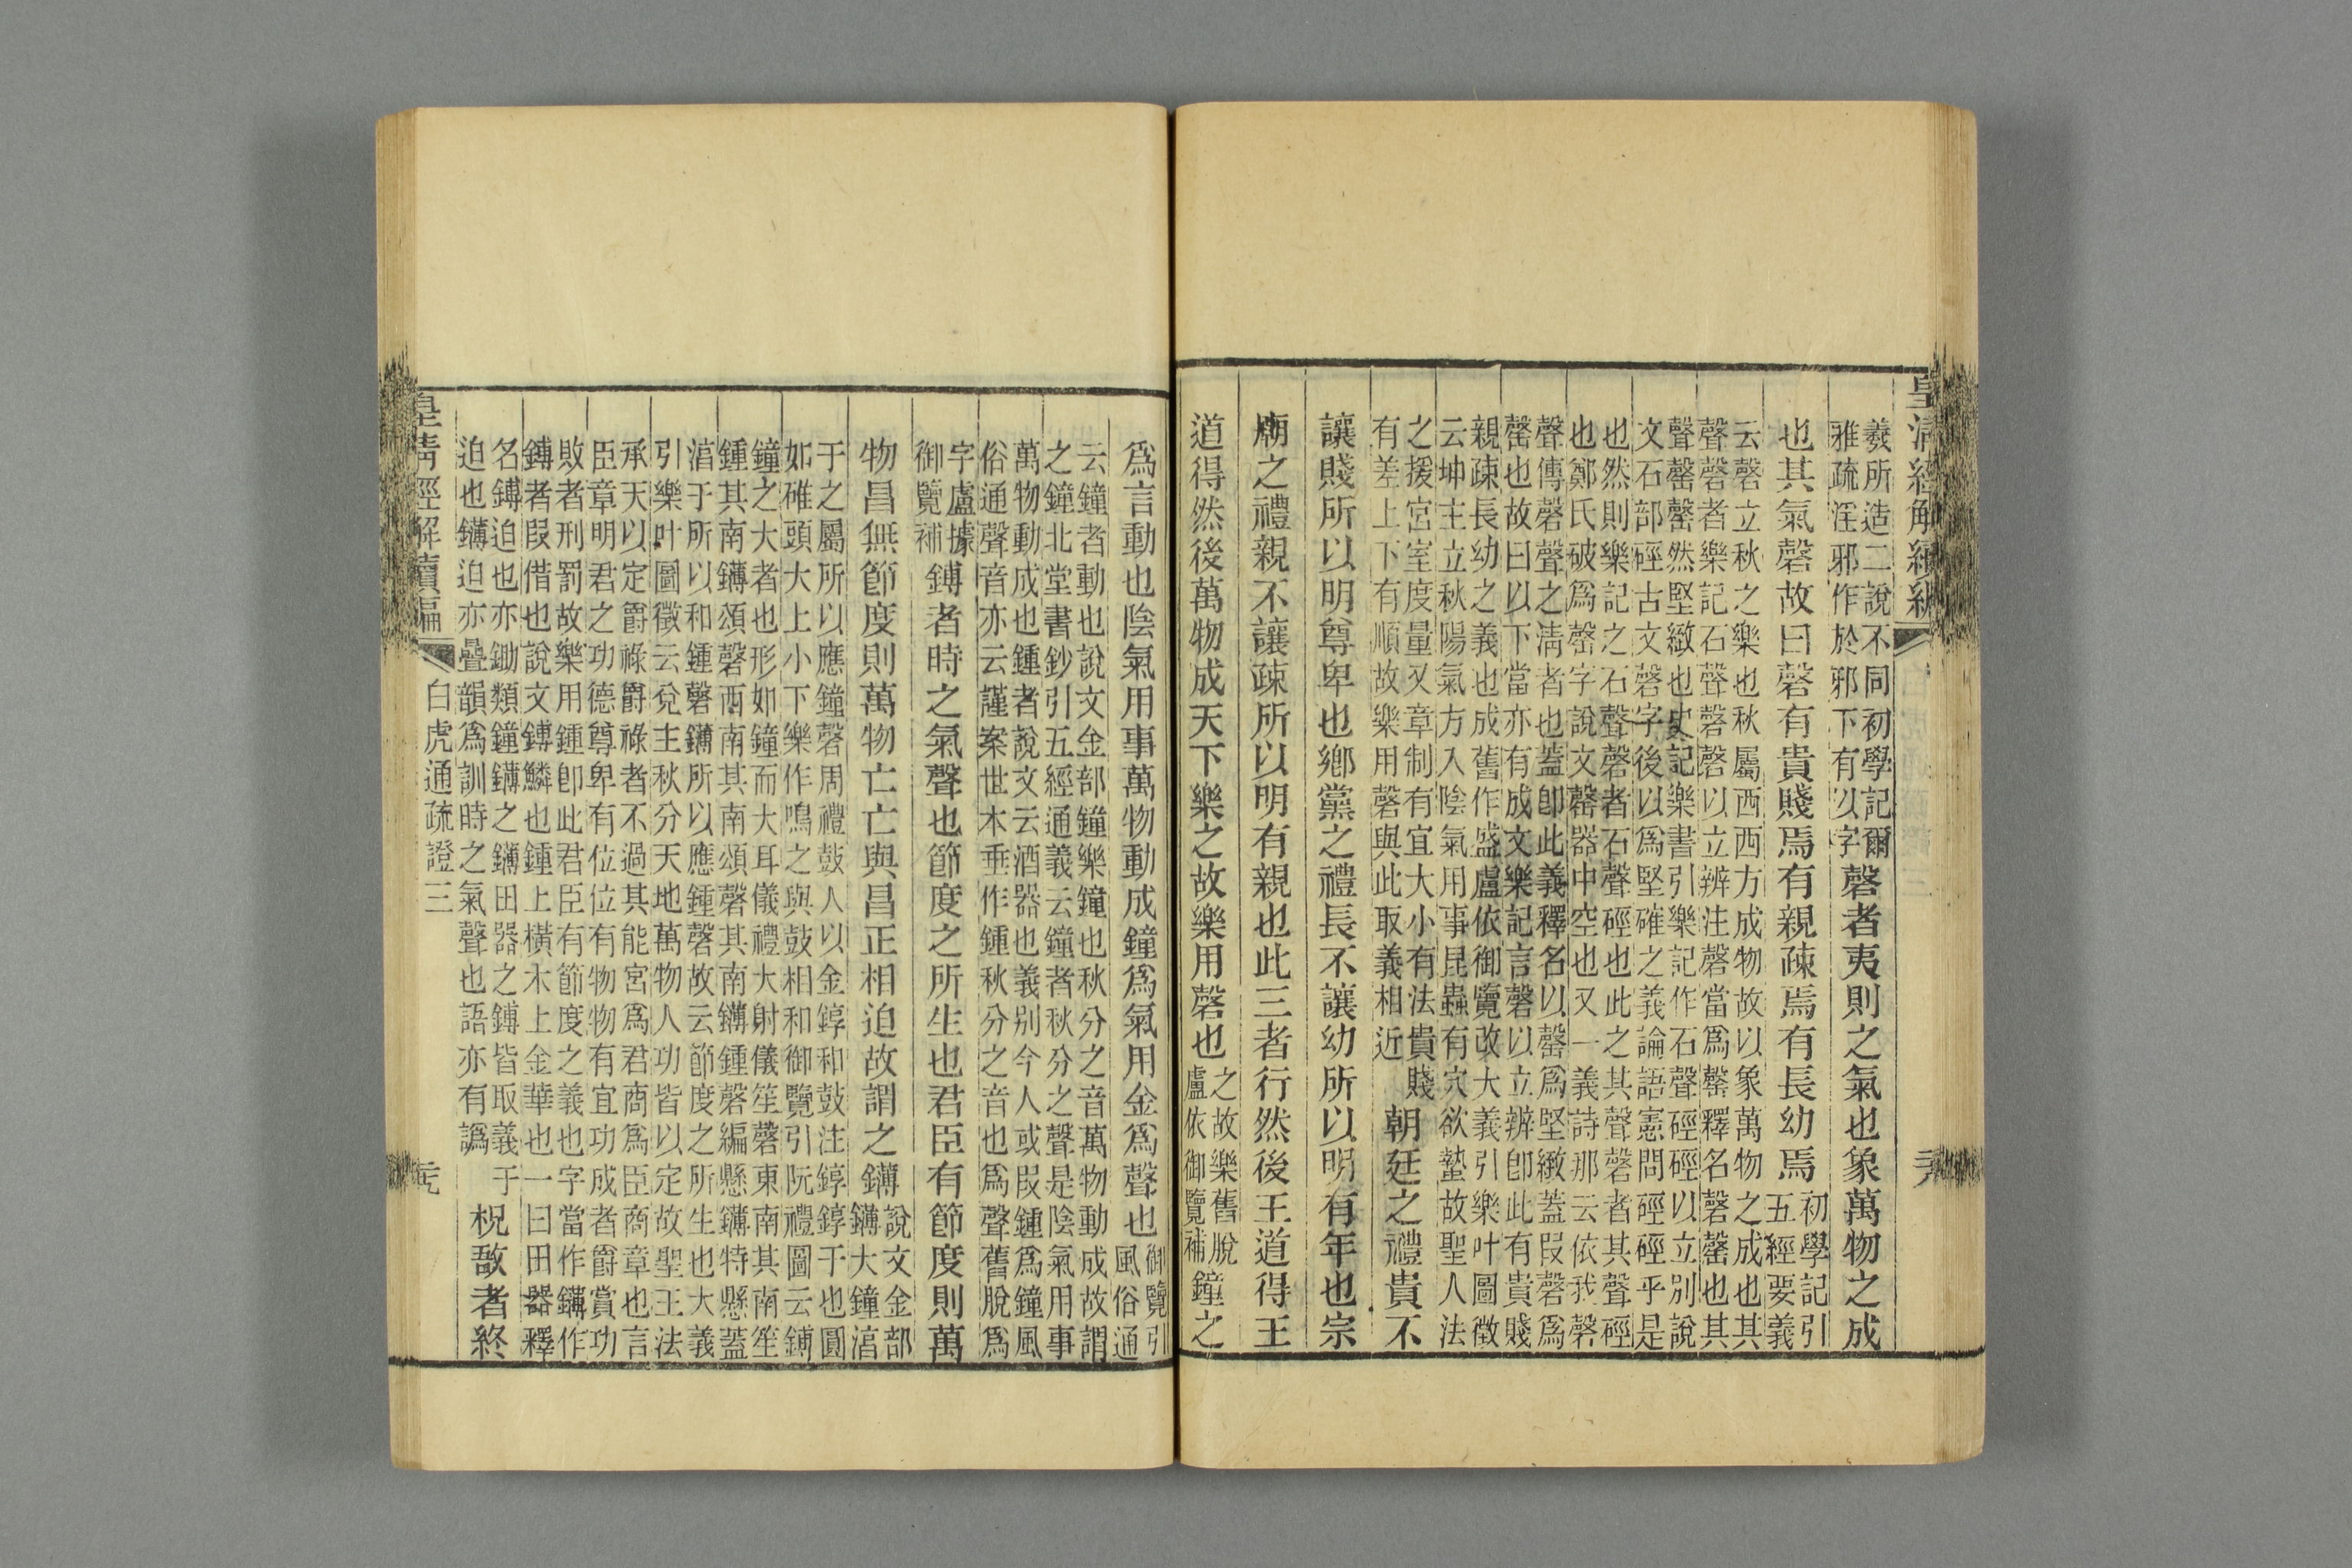 皇清經解續編
羲所造二說不同初學記爾
雅疏淫邪作於邪下有以字
磬者夷則之氣也象萬物之成
也其氣磬故曰磬有貴賤焉有親疎焉有長幼焉
初學記引
五經要義
云磬立秋之樂也秋屬西西方成物故以象萬物之成也其
聲磬者樂記石聲磬磬以立辨注磬當爲罄釋名磬罄也其
聲罄罄然堅緻也史記樂書引樂記作石聲硜硜以立別說
文石部硜古文磬字後以爲堅確之義論語憲問硜硜乎是
也然則樂記之石聲磬者石聲硜也此之其聲磬者其聲硜
也鄭氏破爲罄字說文罄器中空也又一義詩那云依我磬
聲傳磬聲之淸者也蓋卽此義釋名以罄爲堅緻蓋叚磬爲
罄也故曰以下當亦有成文樂記言磬以立辨卽此有貴賤
親疎長幼之義也成舊作盛盧依御覽改大義引樂叶圖徵
云坤主立秋陽氣方入陰氣用事昆蟲有穴欲蟄故聖人法
之援宮室度量又章制有宜大小有法貴賤
有差上下有順故樂用磬與此取義相近
朝廷之禮貴不
讓賤所以明尊卑也鄕黨之禮長不讓幼所以明有年也宗
廟之禮親不讓疎所以明有親也此三者行然後王道得王
道得然後萬物成天下樂之故樂用磬也
之故樂舊脫
盧依御覽補
鐘之
爲言動也陰氣用事萬物動成鐘爲氣用金爲聲也
御覽引
風俗通
云鐘者動也說文金部鐘樂鐘也秋分之音萬物動成故謂
之鐘北堂書鈔引五經通義云鐘者秋分之聲是陰氣用事
萬物動成也鍾者說文云酒器也義别今人或叚鍾爲鐘風
俗通聲音亦云謹案世本垂作鍾秋分之音也爲聲舊脫爲
字盧據
御覽補
鎛者時之氣聲也節度之所生也君臣有節度則萬
物昌無節度則萬物亡亡與昌正相迫故謂之鎛
說文金部
鎛大鐘湻
于之屬所以應鐘磬周禮鼓人以金錞和鼓注錞錞于也圓
如碓頭大上小下樂作鳴之與鼓相和御覽引阮禮圖云鎛
鐘之大者也形如鐘而大耳儀禮大射儀笙磬東南其南笙
鍾其南鎛頌磬西南其南頌磬其南鎛鍾磬編懸鎛特懸蓋
湻于所以和鍾磬鎛所以應鍾磬故云節度之所生也大義
引樂叶圖徵云兌主秋分天地萬物人功皆以定故聖王法
承天以定爵祿爵祿者不過其能宮爲君商爲臣商章也言
臣章明君之功德尊卑有位位有物物有宜功成者爵賞功
敗者刑罰故樂用鍾卽此君臣有節度之義也字當作鎛作
鎛者叚借也說文鎛鱗也鍾上橫木上金華也一曰田器釋
名鎛迫也亦鋤類鐘鎛之鎛田器之鎛皆取義于
迫也鎛迫亦疊韻爲訓時之氣聲也語亦有譌
柷敔者終
皇清經解續編
白虎通疏證三